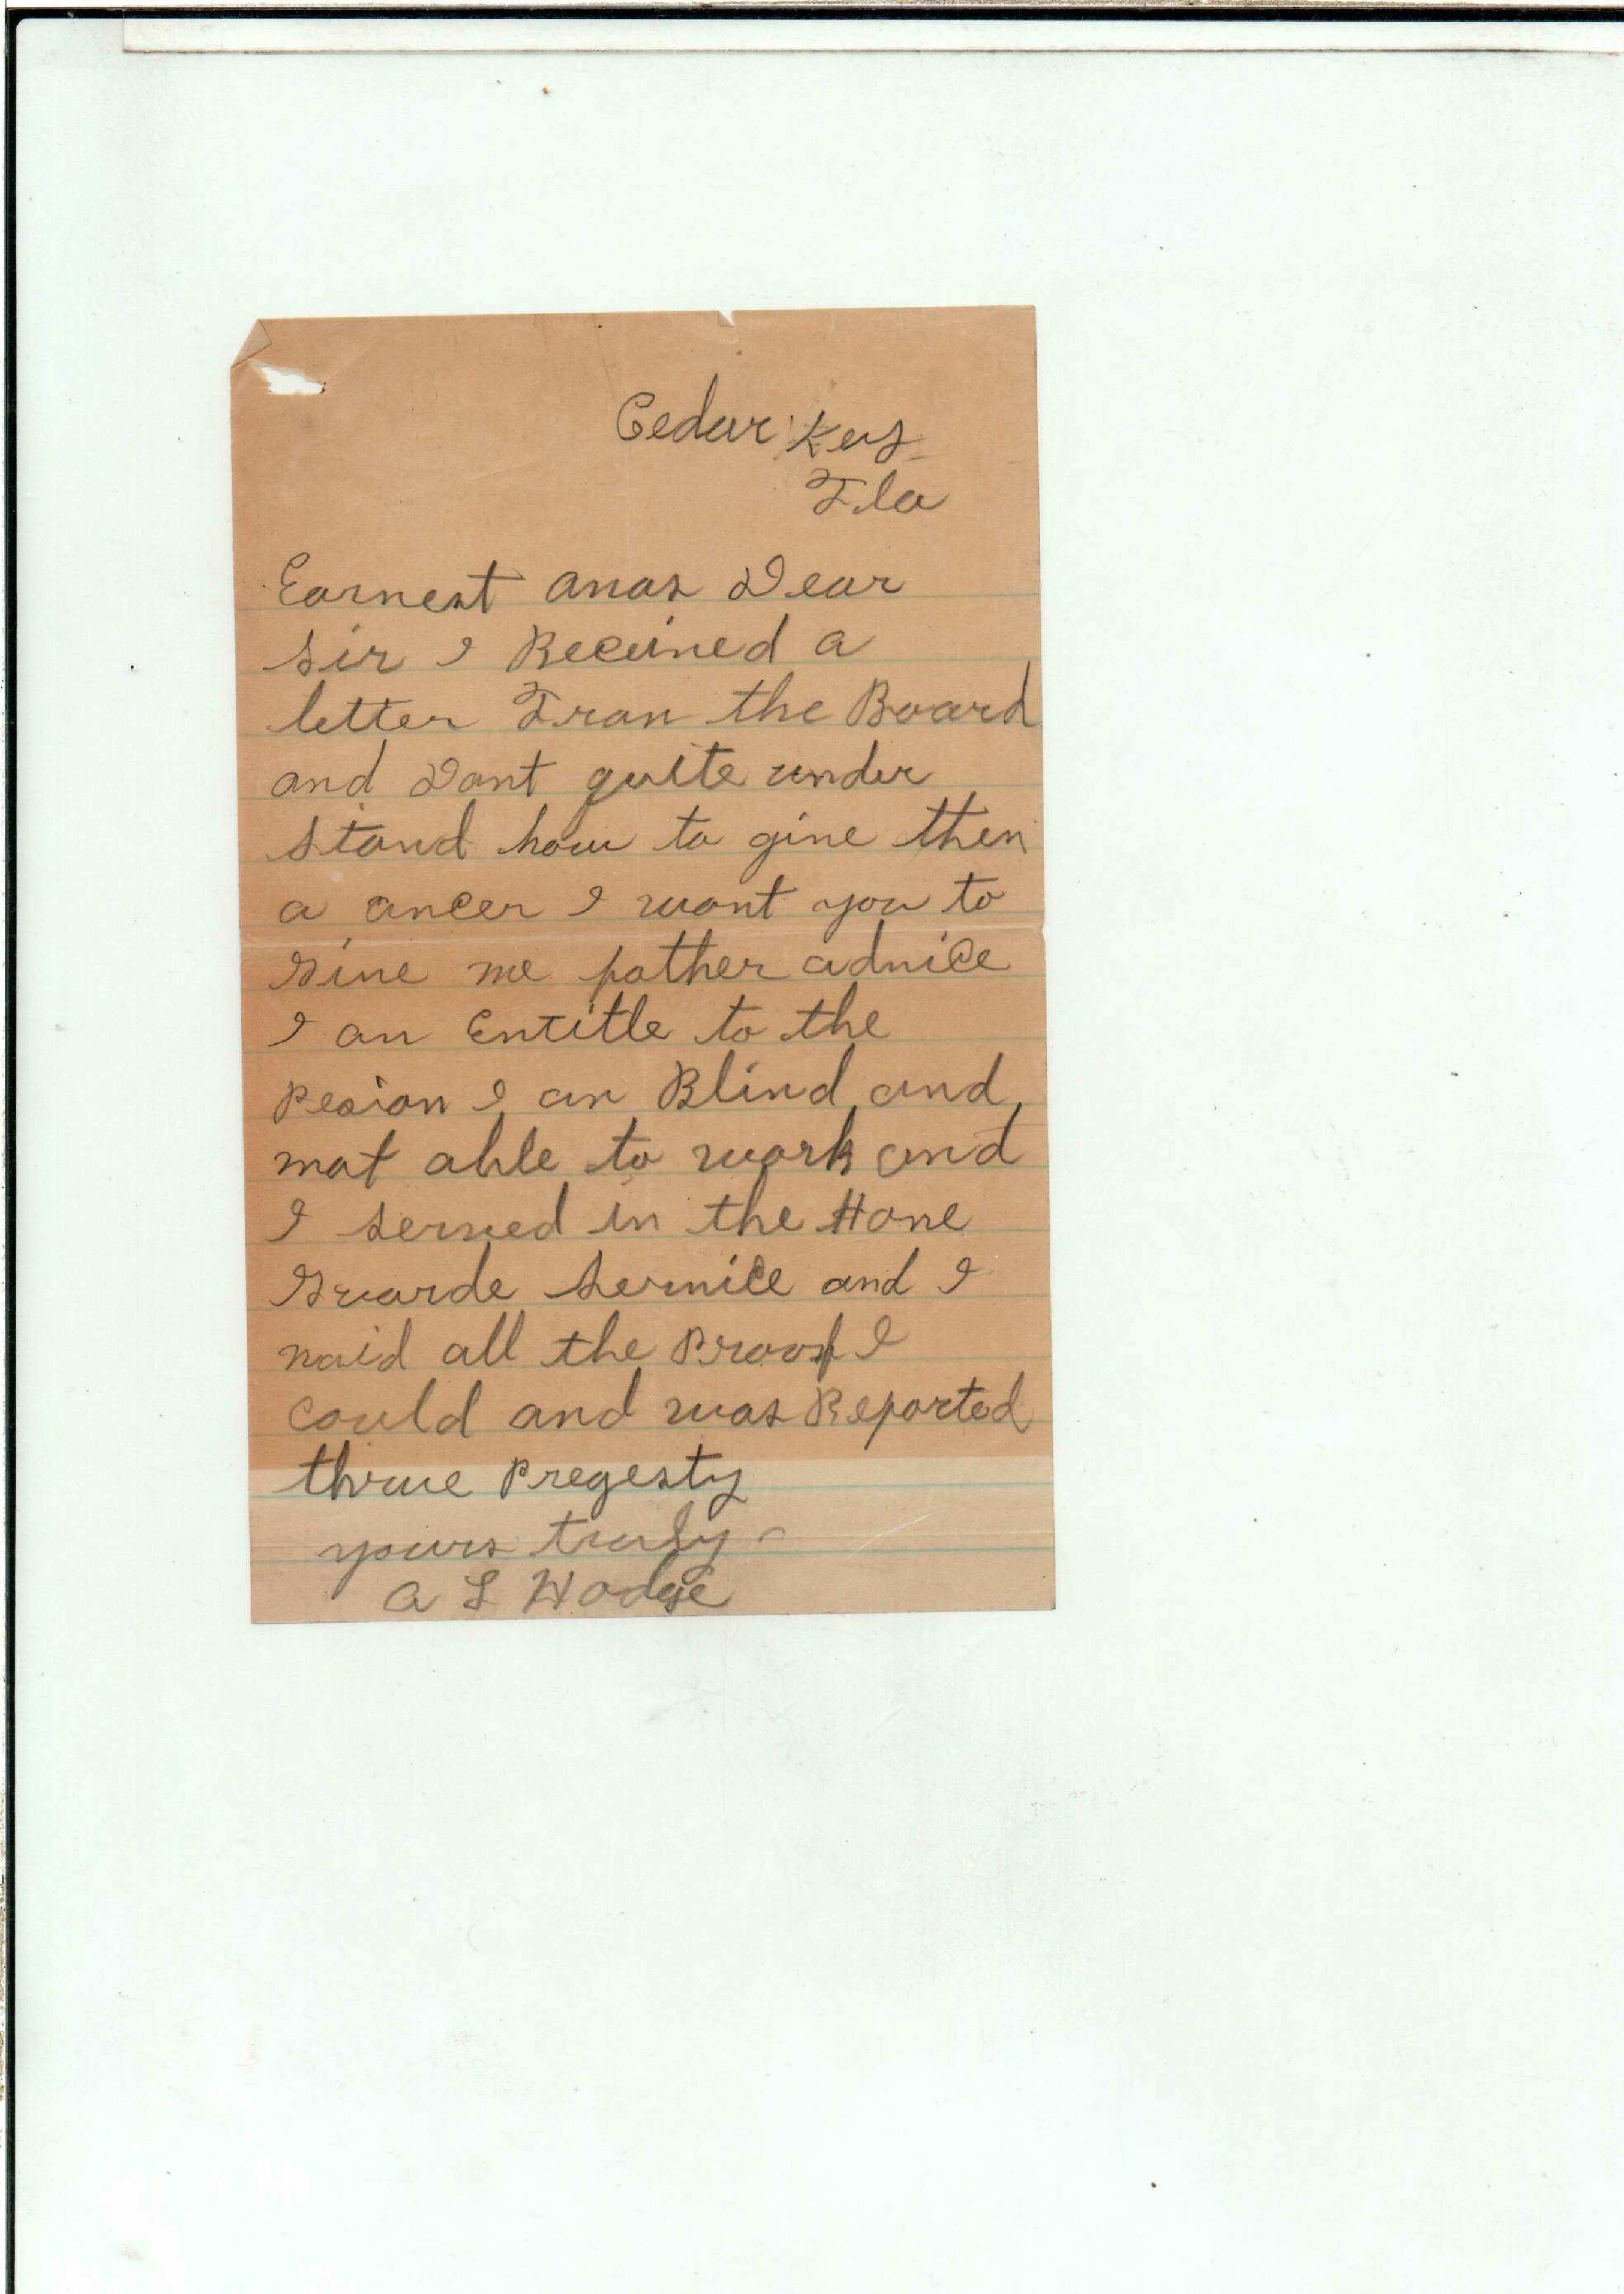 Cedar Key
Fla
Earnest Amos Dear
Sir I Received a
letter From the Board
and Dont quite under
stand how to give them
a ancer I want you to
Give me father advice
I am Entitle to the
Pesion I am Blind and
not able to work and
I served in the Home
Guarde Service and I
maid all the Proof I
could and was Reported
thrue Pregesty
yours truly
A L Hodge